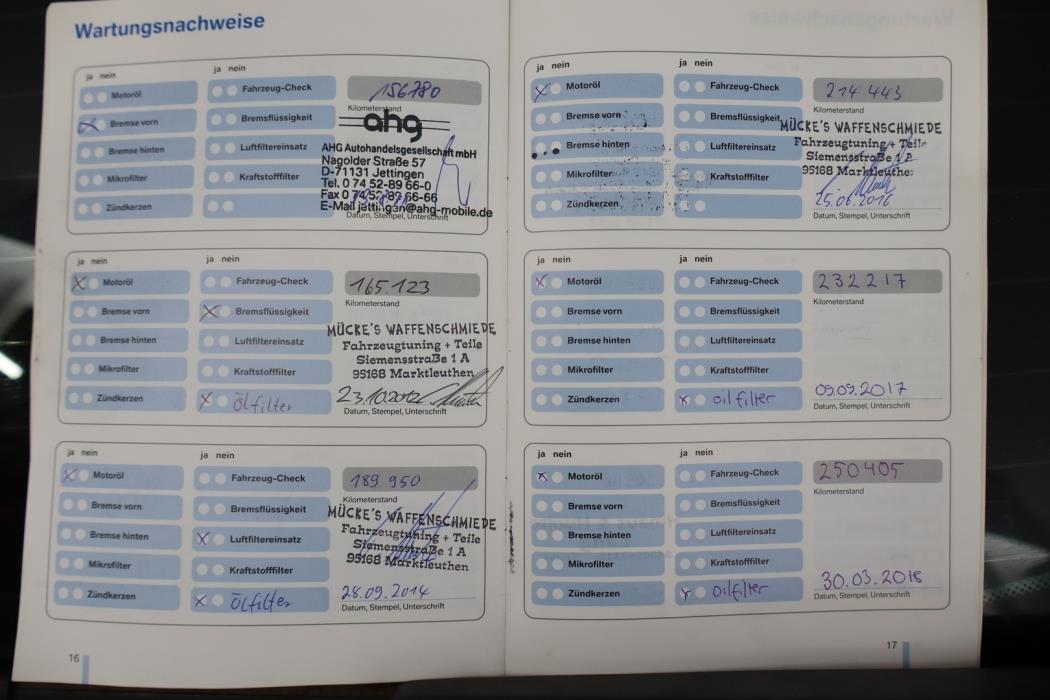 Wartungsnachweise
ja nein
ja nein
Motoröl
Fahrzeug-Check
156780
Kilometerstand
Bremse vorn
Bremsflüssigkeit
ahg
Bremse hinten
Luftfiltereinsatz
AHG Autohandelsgesellschaft mbH
Nagolder Straße 57
D-71131 Jettingen
Mikrofilter
Kraftstofffilter
Tel. 0 74 52-89 66-0
Fax 0 74 52-89 66-66
E-Mail jettingen@ahg-mobile.de
Zündkerzen
Datum, Stempel, Unterschrift
ja nein
ja nein
Motoröl
Fahrzeug-Check
165.123
Kilometerstand
Bremse vorn
Bremsflüssigkeit
MÜCKE'S WAFFENSCHMIEDE
Bremse hinten
Luftfiltereinsatz
Fahrzeugtuning + Teile
Siemensstraße 1 A
Mikrofilter
Kraftstofffilter
95168 Marktleuthen
Zündkerzen
Ölfilter
23.10.2012
Datum, Stempel, Unterschrift
ja nein
ja nein
Motoröl
Fahrzeug-Check
189 950
Kilometerstand
Bremse vorn
Bremsflüssigkeit
MÜCKE'S WAFFENSCHMIEDE
Bremse hinten
Luftfiltereinsatz
Fahrzeugtuning + Teile
Siemensstraße 1 A
Mikrofilter
Kraftstofffilter
95168 Marktleuthen
Zündkerzen
Ölfilter
28.09.2014
Datum, Stempel, Unterschrift
16
ja nein
ja nein
Motoröl
Fahrzeug-Check
214 443
Kilometerstand
Bremse vorn
Bremsflüssigkeit
MÜCKE'S WAFFENSCHMIEDE
Bremse hinten
Luftfiltereinsatz
Fahrzeugtuning + Teile
Siemensstraße 1 A
Mikrofilter
Kraftstofffilter
95168 Marktleuthe
Zündkerzen
25.06.2016
Datum, Stempel, Unterschrift
ja nein
ja nein
Motoröl
Fahrzeug-Check
232217
Kilometerstand
Bremse vorn
Bremsflüssigkeit
Bremse hinten
Luftfiltereinsatz
Mikrofilter
Kraftstofffilter
Zündkerzen
oilfilter
09.09.2017
Datum, Stempel, Unterschrift
ja nein
ja nein
Motoröl
Fahrzeug-Check
250405
Kilometerstand
Bremse vorn
Bremsflüssigkeit
Bremse hinten
Luftfiltereinsatz
Mikrofilter
Kraftstofffilter
Zündkerzen
oilfilter
30.03.2018
Datum, Stempel, Unterschrift
17